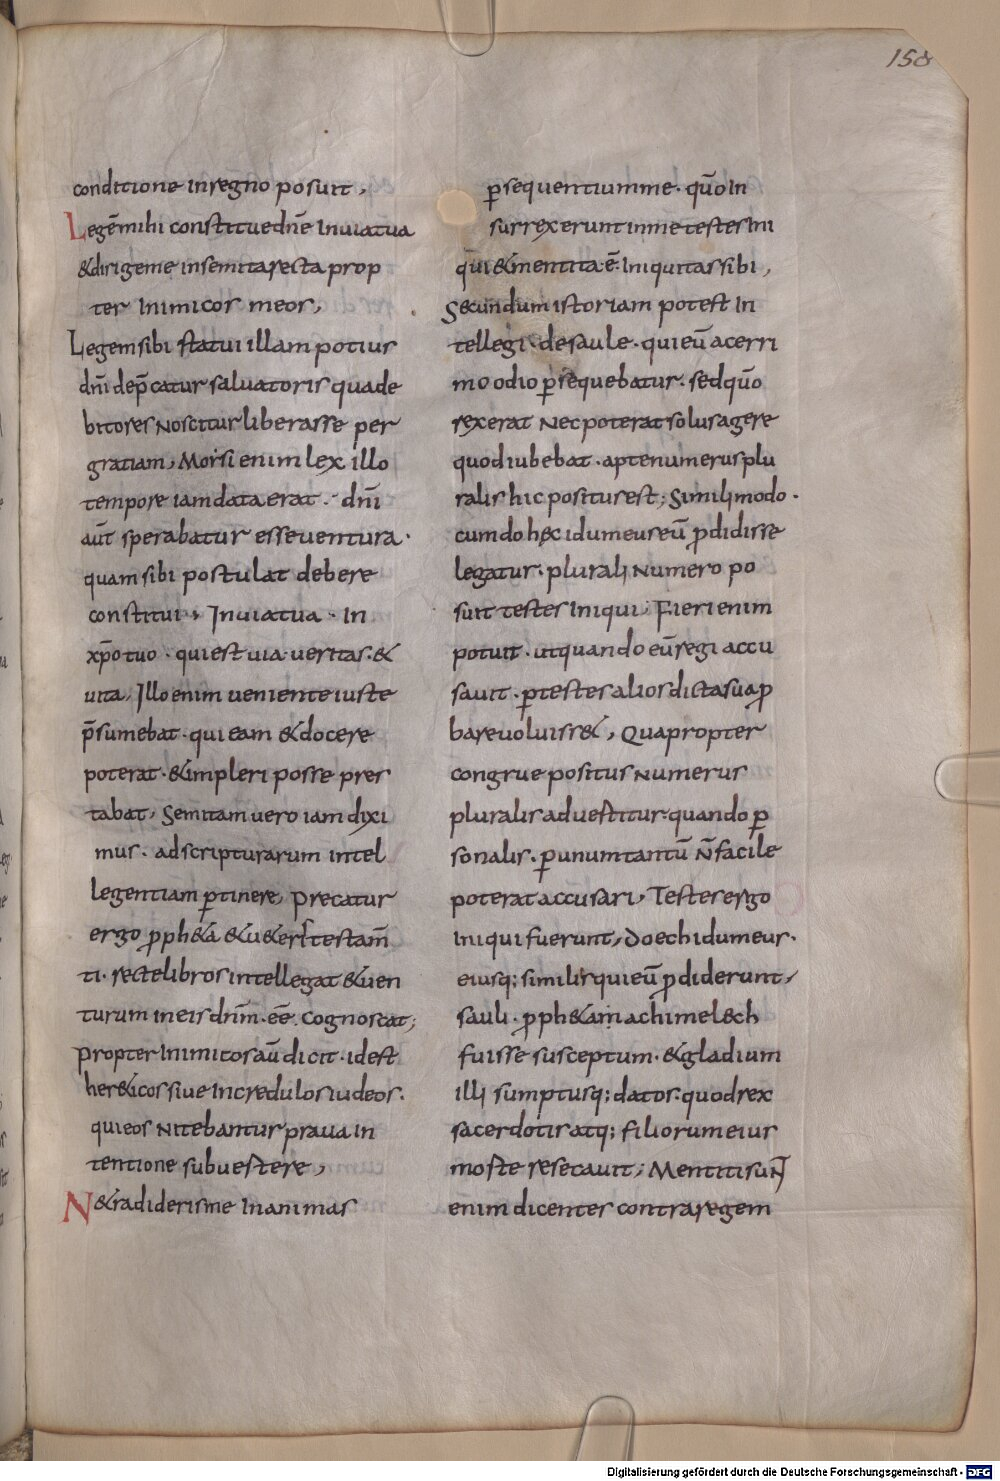 158
conditione inregno posuit,
Legēmihi constituednē Inuiatua
&dirigeme insemitarecta prop
ter Inimicos meos,
Legemsibi statui illam potius
dn̄i dep̄catur saluatoris quade
bitores Nosciturliberasse per
gratiam, Moysi enim lex illo
tempore iamdataerat · dn̄i
aūt sperabatur esseuentura·
quamsibi postulat debere
constitui, Inuiatua · In
xp̄otuo · quiest uia·ueritas·&
uita, Illoenim uenienteiuste
p̄sumebat· qui eam &docere
poterat·&impleri posse pres
tabat, Semitam uero iam dixi
mus· adscripturarum intel
legentiam ꝑtinere, precatur
ergo ꝓph&a &u&eris testam̄
ti· rectelibros intellegat &uen
turum in eis dn̄m· eē· cognoscat;
propter Inimicos aū dicit· idest
her&icos siue Incredulos iudeos·
quieos Nitebantur praua In
tentione subuertere,
N&radiderisme Inanimas
ꝑsequentiumme· qūoIn
surrexerunt inme testes Ini
q̄ui &mentita ē· Iniquitas sibi,
Secundum istoriam potest In
tellegi· de saule· qui eū acerri
mo odio ꝑsequebatur· sed qūo
rex erat Nec poterat solus agere
quod iubebat· apte numerus plu
ralis hic positus est; Simili modo·
cum doh&c idumeus eū ꝓdidisse
legatur· plurali Numero po
suit testes Iniqui, Fieri enim
potuit· ut quando eū regi accu
sauit· ꝑ testes alios dicta sua ꝓ
bare uoluiss&, Quapropter
congrue positus Numerus
pluralis aduertitur· quando ꝑ
sonalis· ꝑ unum tantū N̄ facile
poterat accusari, Testes ergo
Iniqui fuerunt, doech idumeus·
eiusq; similis qui eū ꝓdiderunt,
sauli· ꝓph&am achimelech
fuisse susceptum· &gladium
illi sumptusq; datos· quod rex
sacerdotis atq; filiorum eius
morte resecauit, Mentiti suNT
enim dicentes contra regem
Digitalisierung gefördert durch die Deutsche Forschungsgemeinschaft - DFG